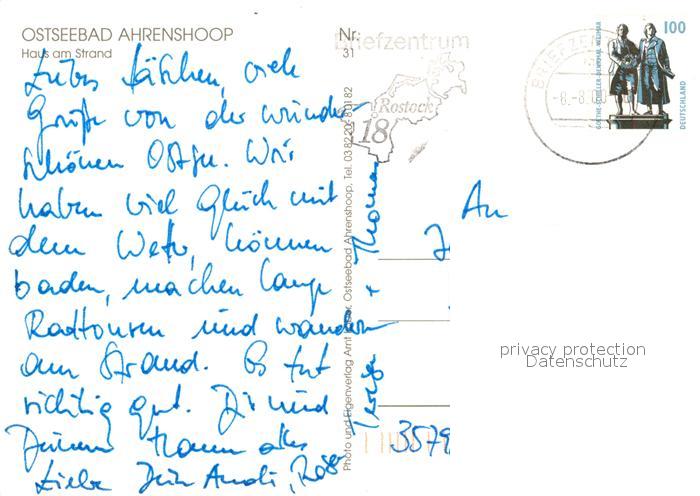 OSTSEEBAD AHRENSHOOP
Haus am Strand
Nr.
31
Briefzentrum
Rostock
18
BRIEFZENT
-8.-8.
100
GOETHE-SCHILLER-DENKMAL WEIMAR
DEUTSCHLAND
viele
Grüße von der wunder
schönen Ostsee. Wir
haben viel Glück mit
dem Wetter, können
baden, machen lange
Radtouren und wandern
am Strand. Es tut
richtig gut. Dir und
Deinem Mann alles
Liebe Deine Andi,
+ Thomas
An
3579
Photo und Eigenverlag Ostseebad Ahrenshoop, Tel. 03 82 20
privacy protection
Datenschutz